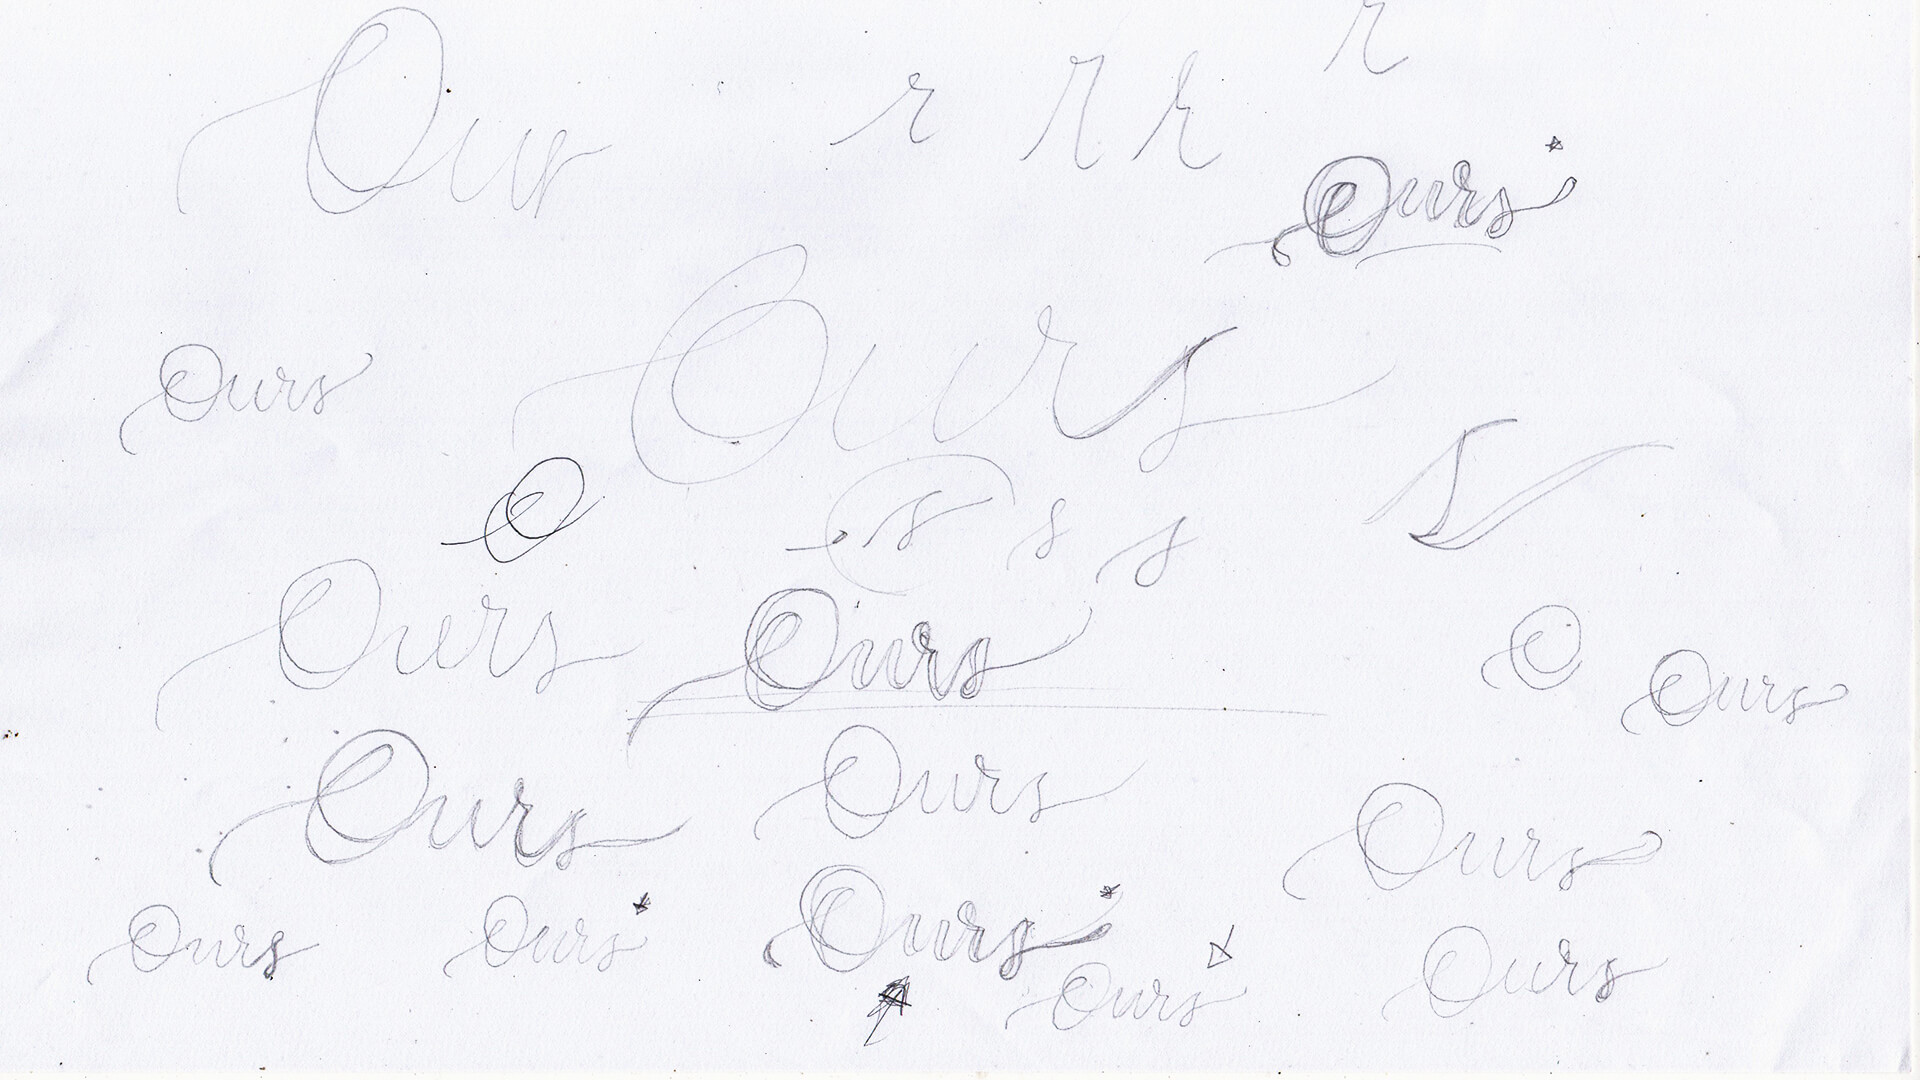 Our r r r r
Ours
Ours Ours
O s s s s
Ours Ours O Ours
Ours Ours Ours
Ours Ours Ours Ours Ours